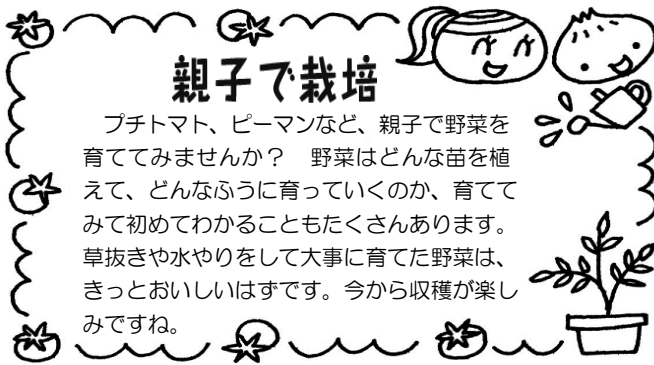 親子で栽培
プチトマト、ピーマンなど、親子で野菜を
育ててみませんか？　野菜はどんな苗を植
えて、どんなふうに育っていくのか、育てて
みて初めてわかることもたくさんあります。
草抜きや水やりをして大事に育てた野菜は、
きっとおいしいはずです。今から収穫が楽し
みですね。